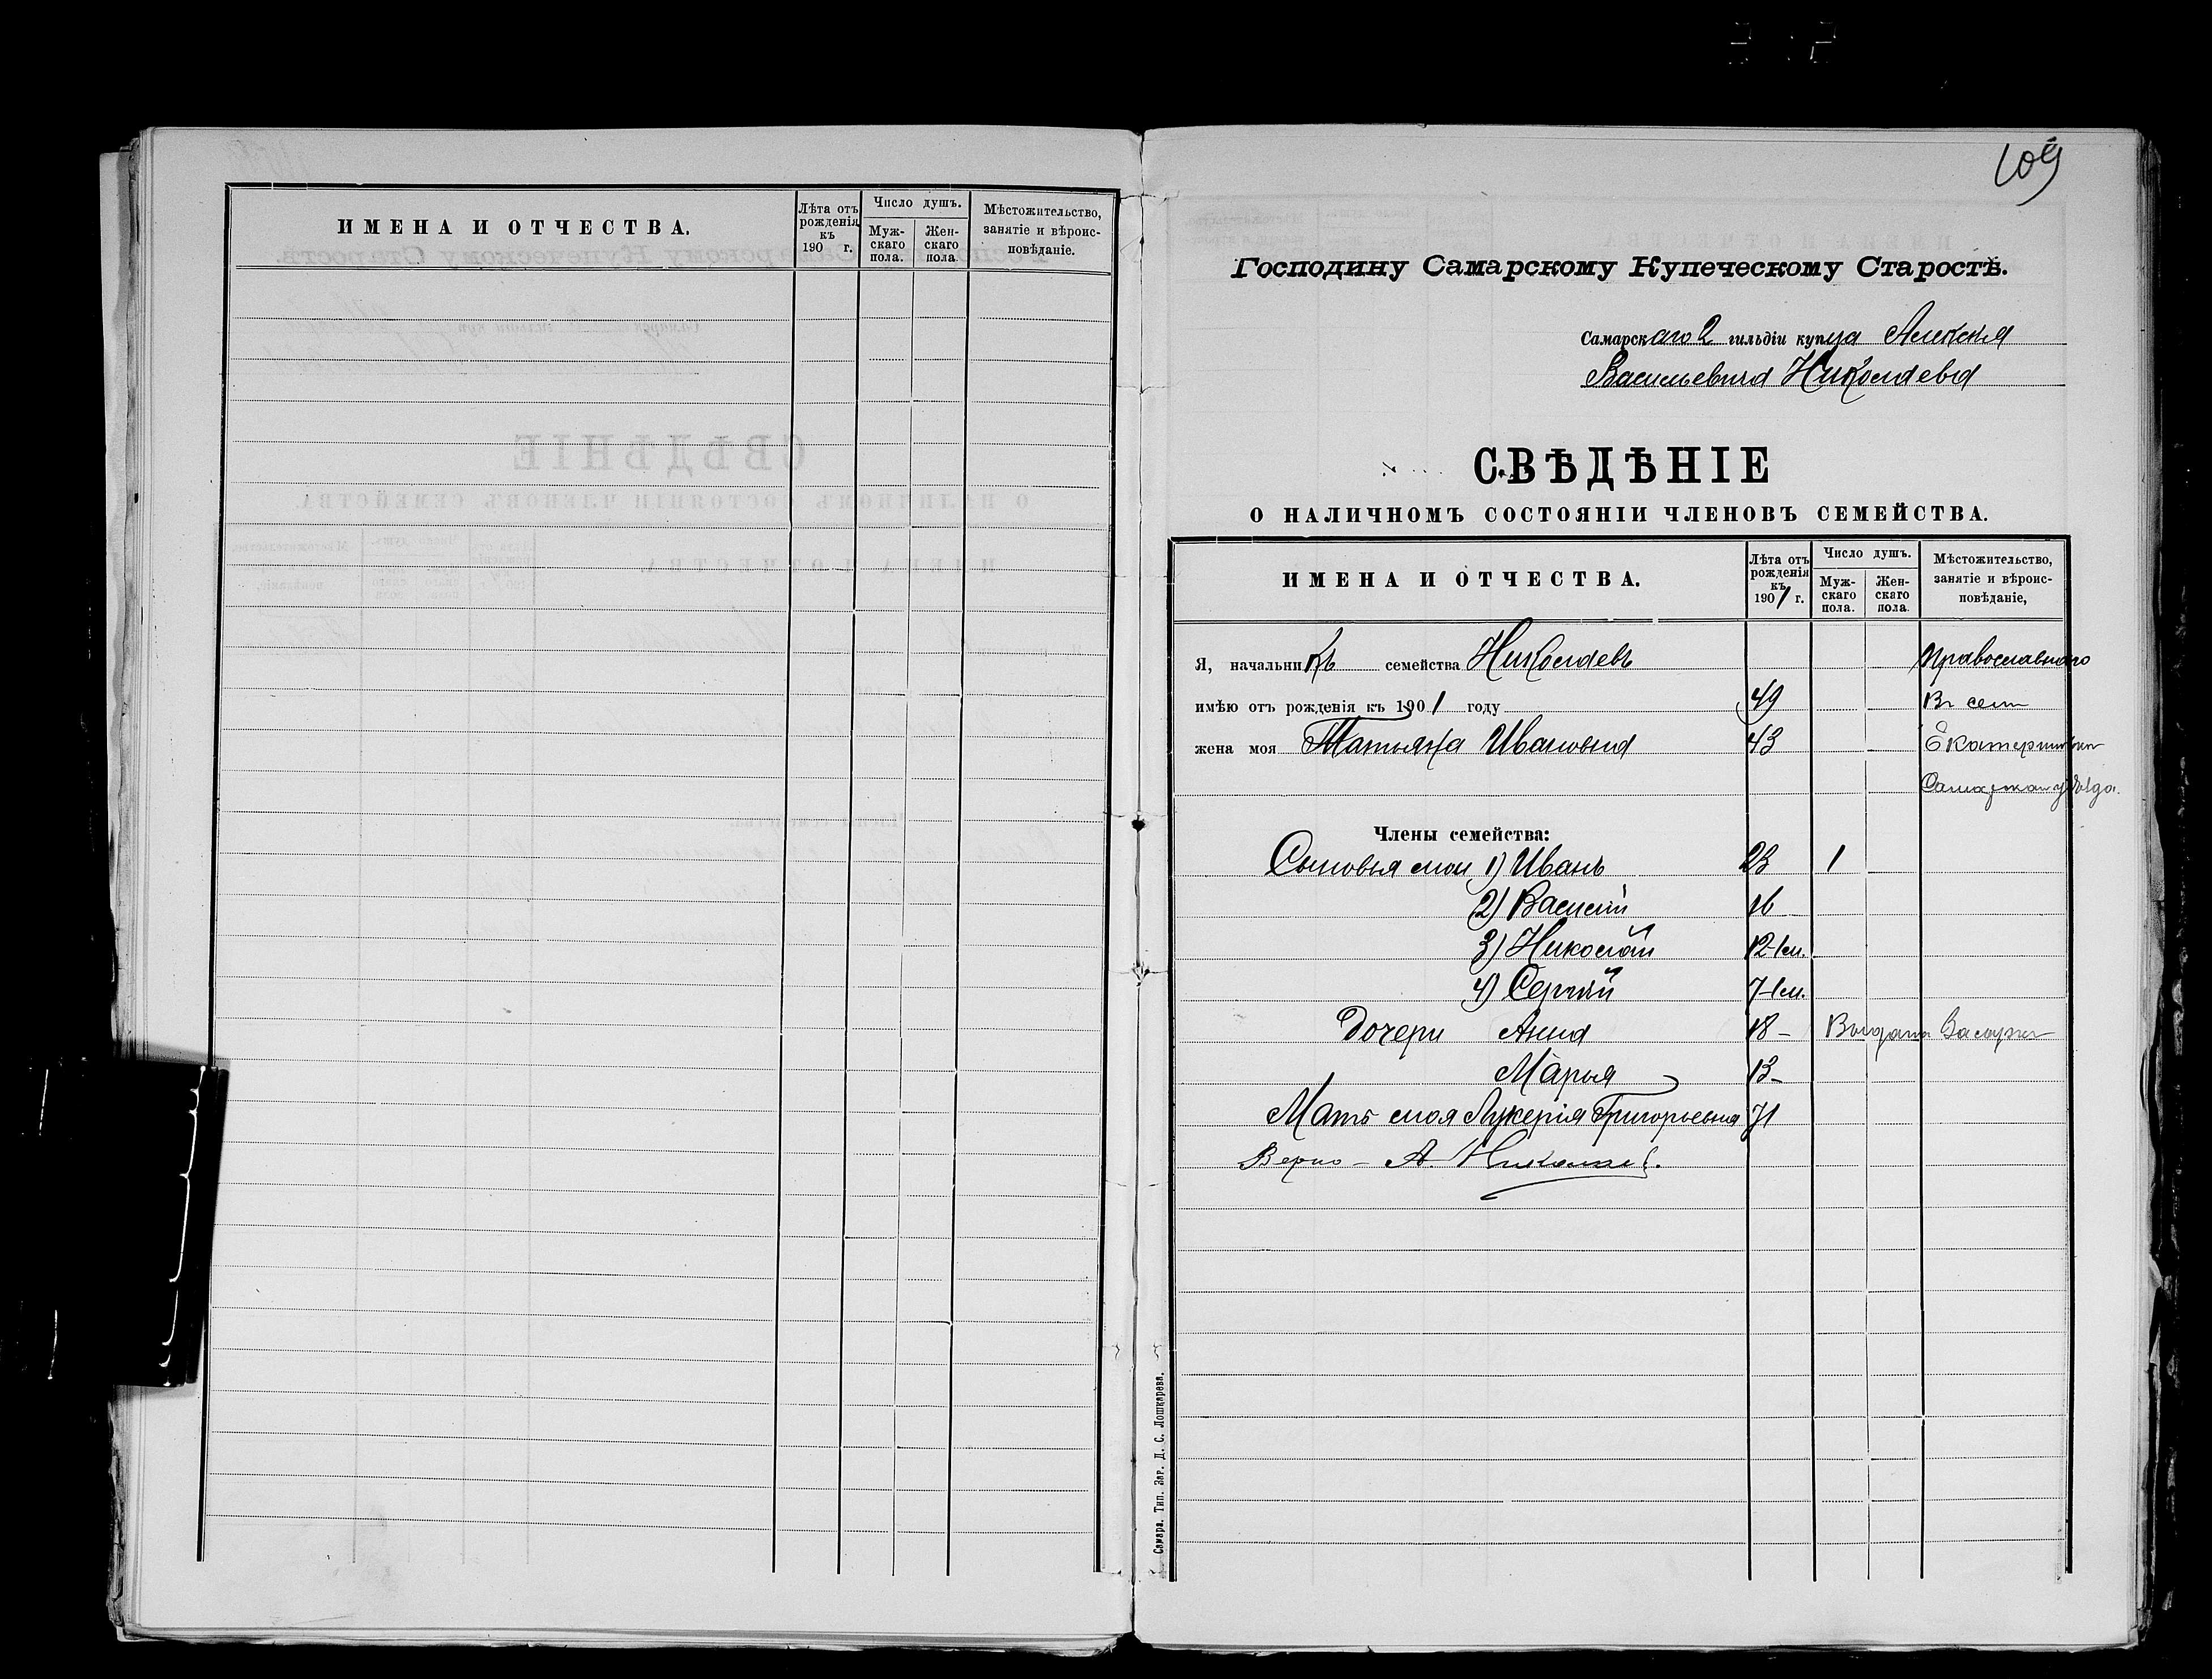 ИМЕНА И ОТЧЕСТВА.
Лѣта отъ рожденія къ 190 г.
Число душъ.
Мужскаго пола.
Женскаго пола.
Мѣстожительство, занятіе и вѣроисповѣданіе.
109
Господину Самарскому Купеческому Старостѣ.
Самарскаго 2 гильдіи купца Алексѣя
Васильевича Николаева
СВѢДѢНІЕ
О НАЛИЧНОМЪ СОСТОЯНІИ ЧЛЕНОВЪ СЕМЕЙСТВА.
ИМЕНА И ОТЧЕСТВА.
Лѣта отъ рожденія къ 1901 г.
Число душъ.
Мужскаго пола.
Женскаго пола.
Мѣстожительство, занятіе и вѣроисповѣданіе,
Я, начальникъ семейства Николаевъ Православнаго
имѣю отъ рожденія къ 1901 году 49 Въ селѣ
жена моя Татьяна Ивановна 43
уѣзда.
Члены семейства:
Сыновья мои 1) Иванъ 23 1
2) Василій 16
3) Николай 12-1м.
4) Сергѣй 7-1м.
Дочери Анна 18- Выдана Замужъ
Марья 13-
Мать моя Лукерія Григорьевна 71
Верно - А. Николаев.
Самара. Тип. Заг. Д. С. Лошкарева.